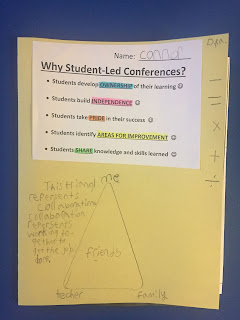 Name: Connor
Why Student-Led Conferences?
• Students develop OWNERSHIP of their learning ☺
• Students build INDEPENDENCE ☺
• Students take PRIDE in their success ☺
• Students identify AREAS FOR IMPROVEMENT ☺
• Students SHARE knowledge and skills learned ☺
− | × + ÷
me
This triangl
represents
collaboration
represents
working to-
get the job
done
friends
techer
family